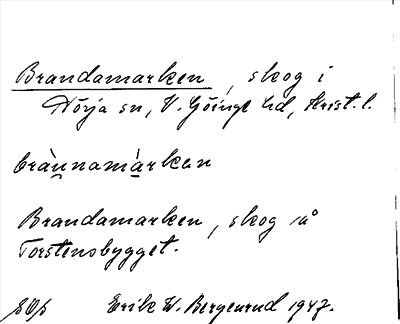 Brandamarken, skog i
Nörja sn, V. Göinge hd, Krist. l.
brànnamàrken
Brandamarken, skog på
Torstensbygget.
Erik W. Bergenrud 1947.